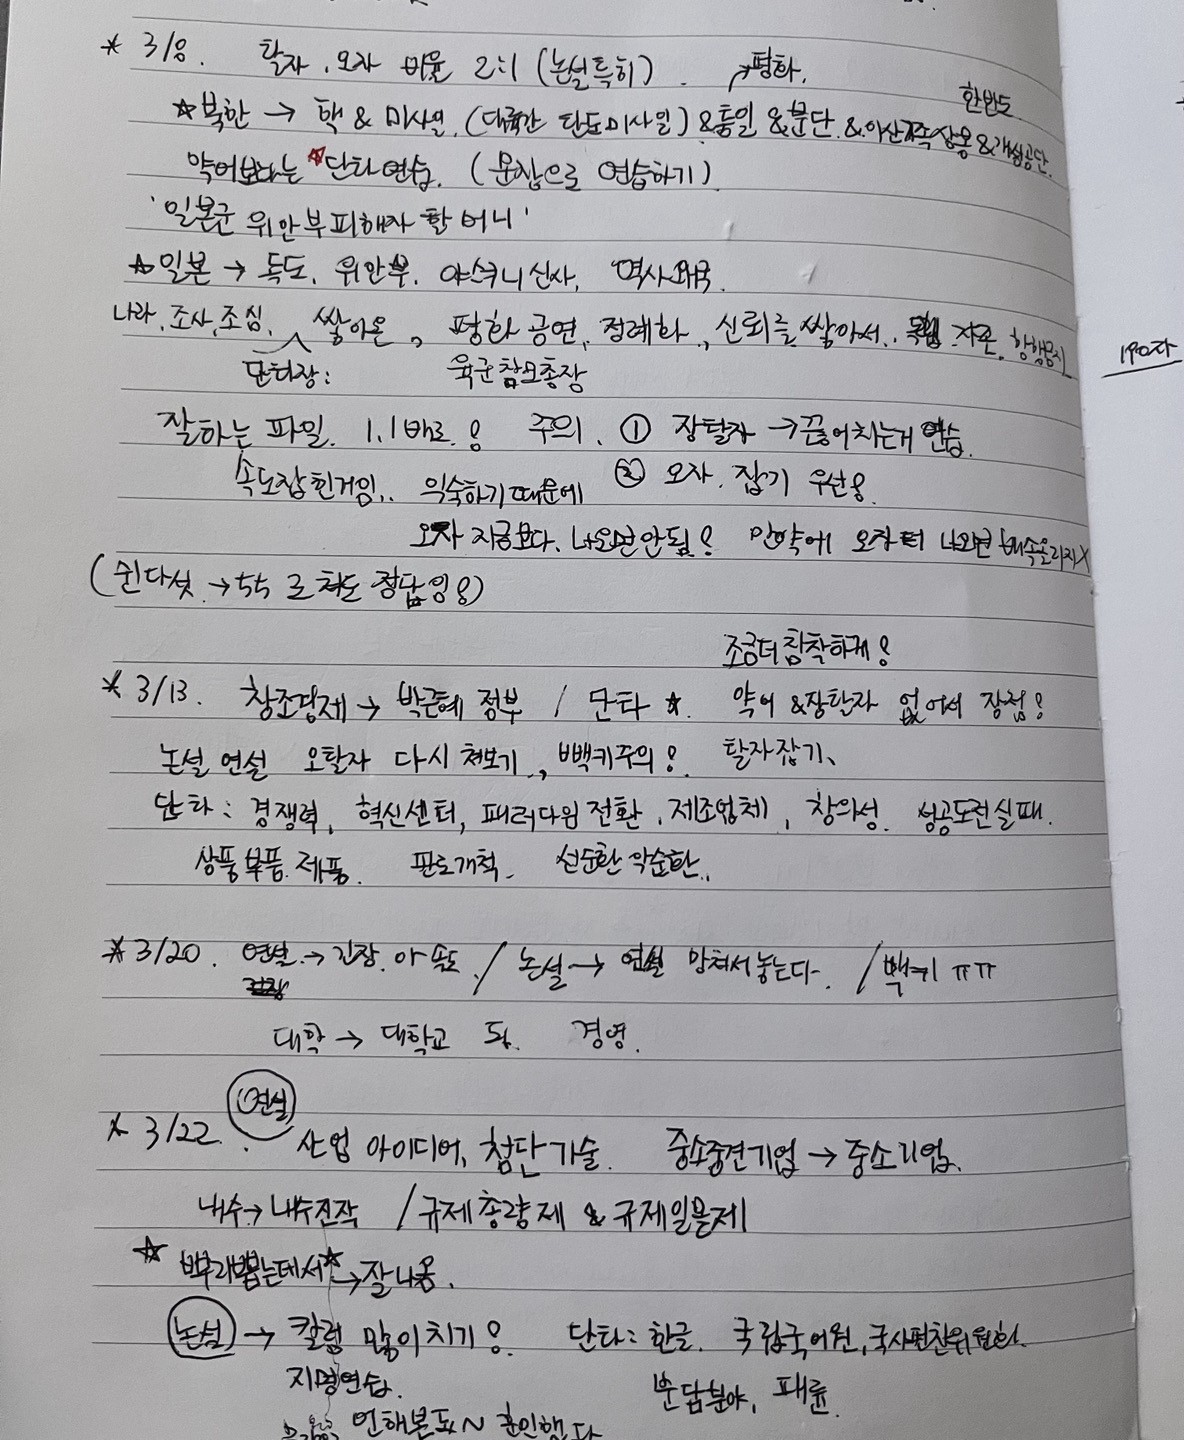 * 3/8. 탈자, 오자 비율 2:1 (논설특히). → 평화,
한반도
☆북한 → 핵 & 미사일, (대륙간 탄도미사일) & 통일 & 분단 & 이산가족상봉 & 개성공단.
약어보다는 ☆단타연습. (문장으로 연습하기).
'일본군 위안부피해자 할머니'
☆일본 → 독도, 위안부, 야스쿠니신사, 역사왜곡.
나라, 조사, 조심, 쌓아온, 평화 공연, 정례화, 신뢰를 쌓아서, 독립
단타장: 육군참모총장
190자
잘하는 파일. 1.1배로! 주의. ① 장탈자 → 끊어치는거 연습.
속도잡힌거임.. 익숙하기때문에 ② 오자. 잡기 우선!
오자 지금보다 나오면안됨! 만약에 오자 더 나오면 배속올리지X
(쉰다섯 → 55 로 쳐도 정답임!)
조금더 침착하게!
* 3/13. 창조경제 → 박근혜 정부 / 단타 ☆. 약어 & 장탈자 없어서 장점!
논설 연설 오탈자 다시 쳐보기., 빽키주의! 탈자잡기.
단타: 경쟁력, 혁신센터, 패러다임 전환, 제조업체, 창의성. 성공도전실패.
상품부품. 제품. 판로개척. 선순환 악순환..
* 3/20. 연설 → 긴장. 아 속도 / 논설 → 연설 망쳐서 놓는다. / 빽키 ㅠㅠ
대학 → 대학교 됨. 경영.
* 3/22. 연설 산업 아이디어, 첨단기술. 중소중견기업 → 중소기업.
내수 → 내수진작 / 규제총량제 & 규제일몰제
☆ 뿌리뽑는데서☆ → 잘나옴.
논설 → 칼럼 많이치기! 단타: 한글. 국립국어원, 국사편찬위원회.
지명연습. 분담분야, 패륜.
언해본